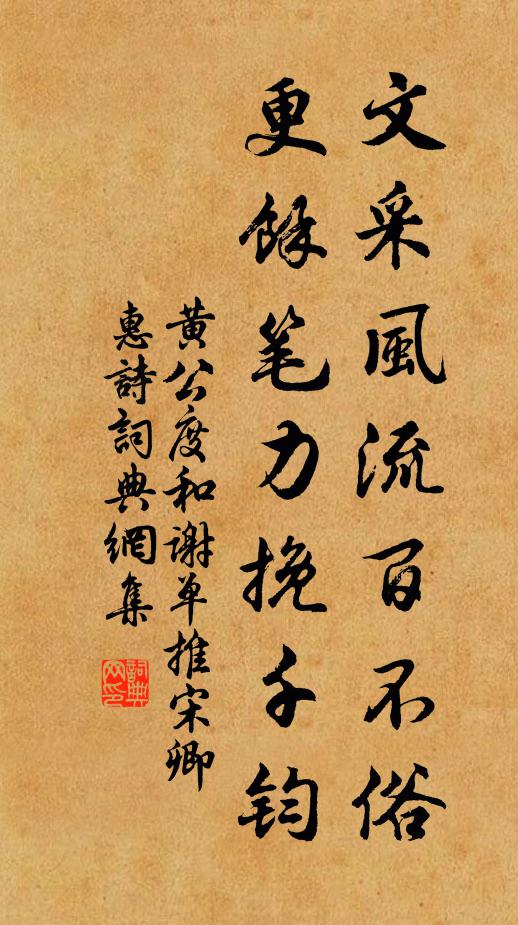 文采風流百不俗
更餘笔力挽千鈞
黄公度和謝单推宋卿
惠詩詞典網集
詞典网印